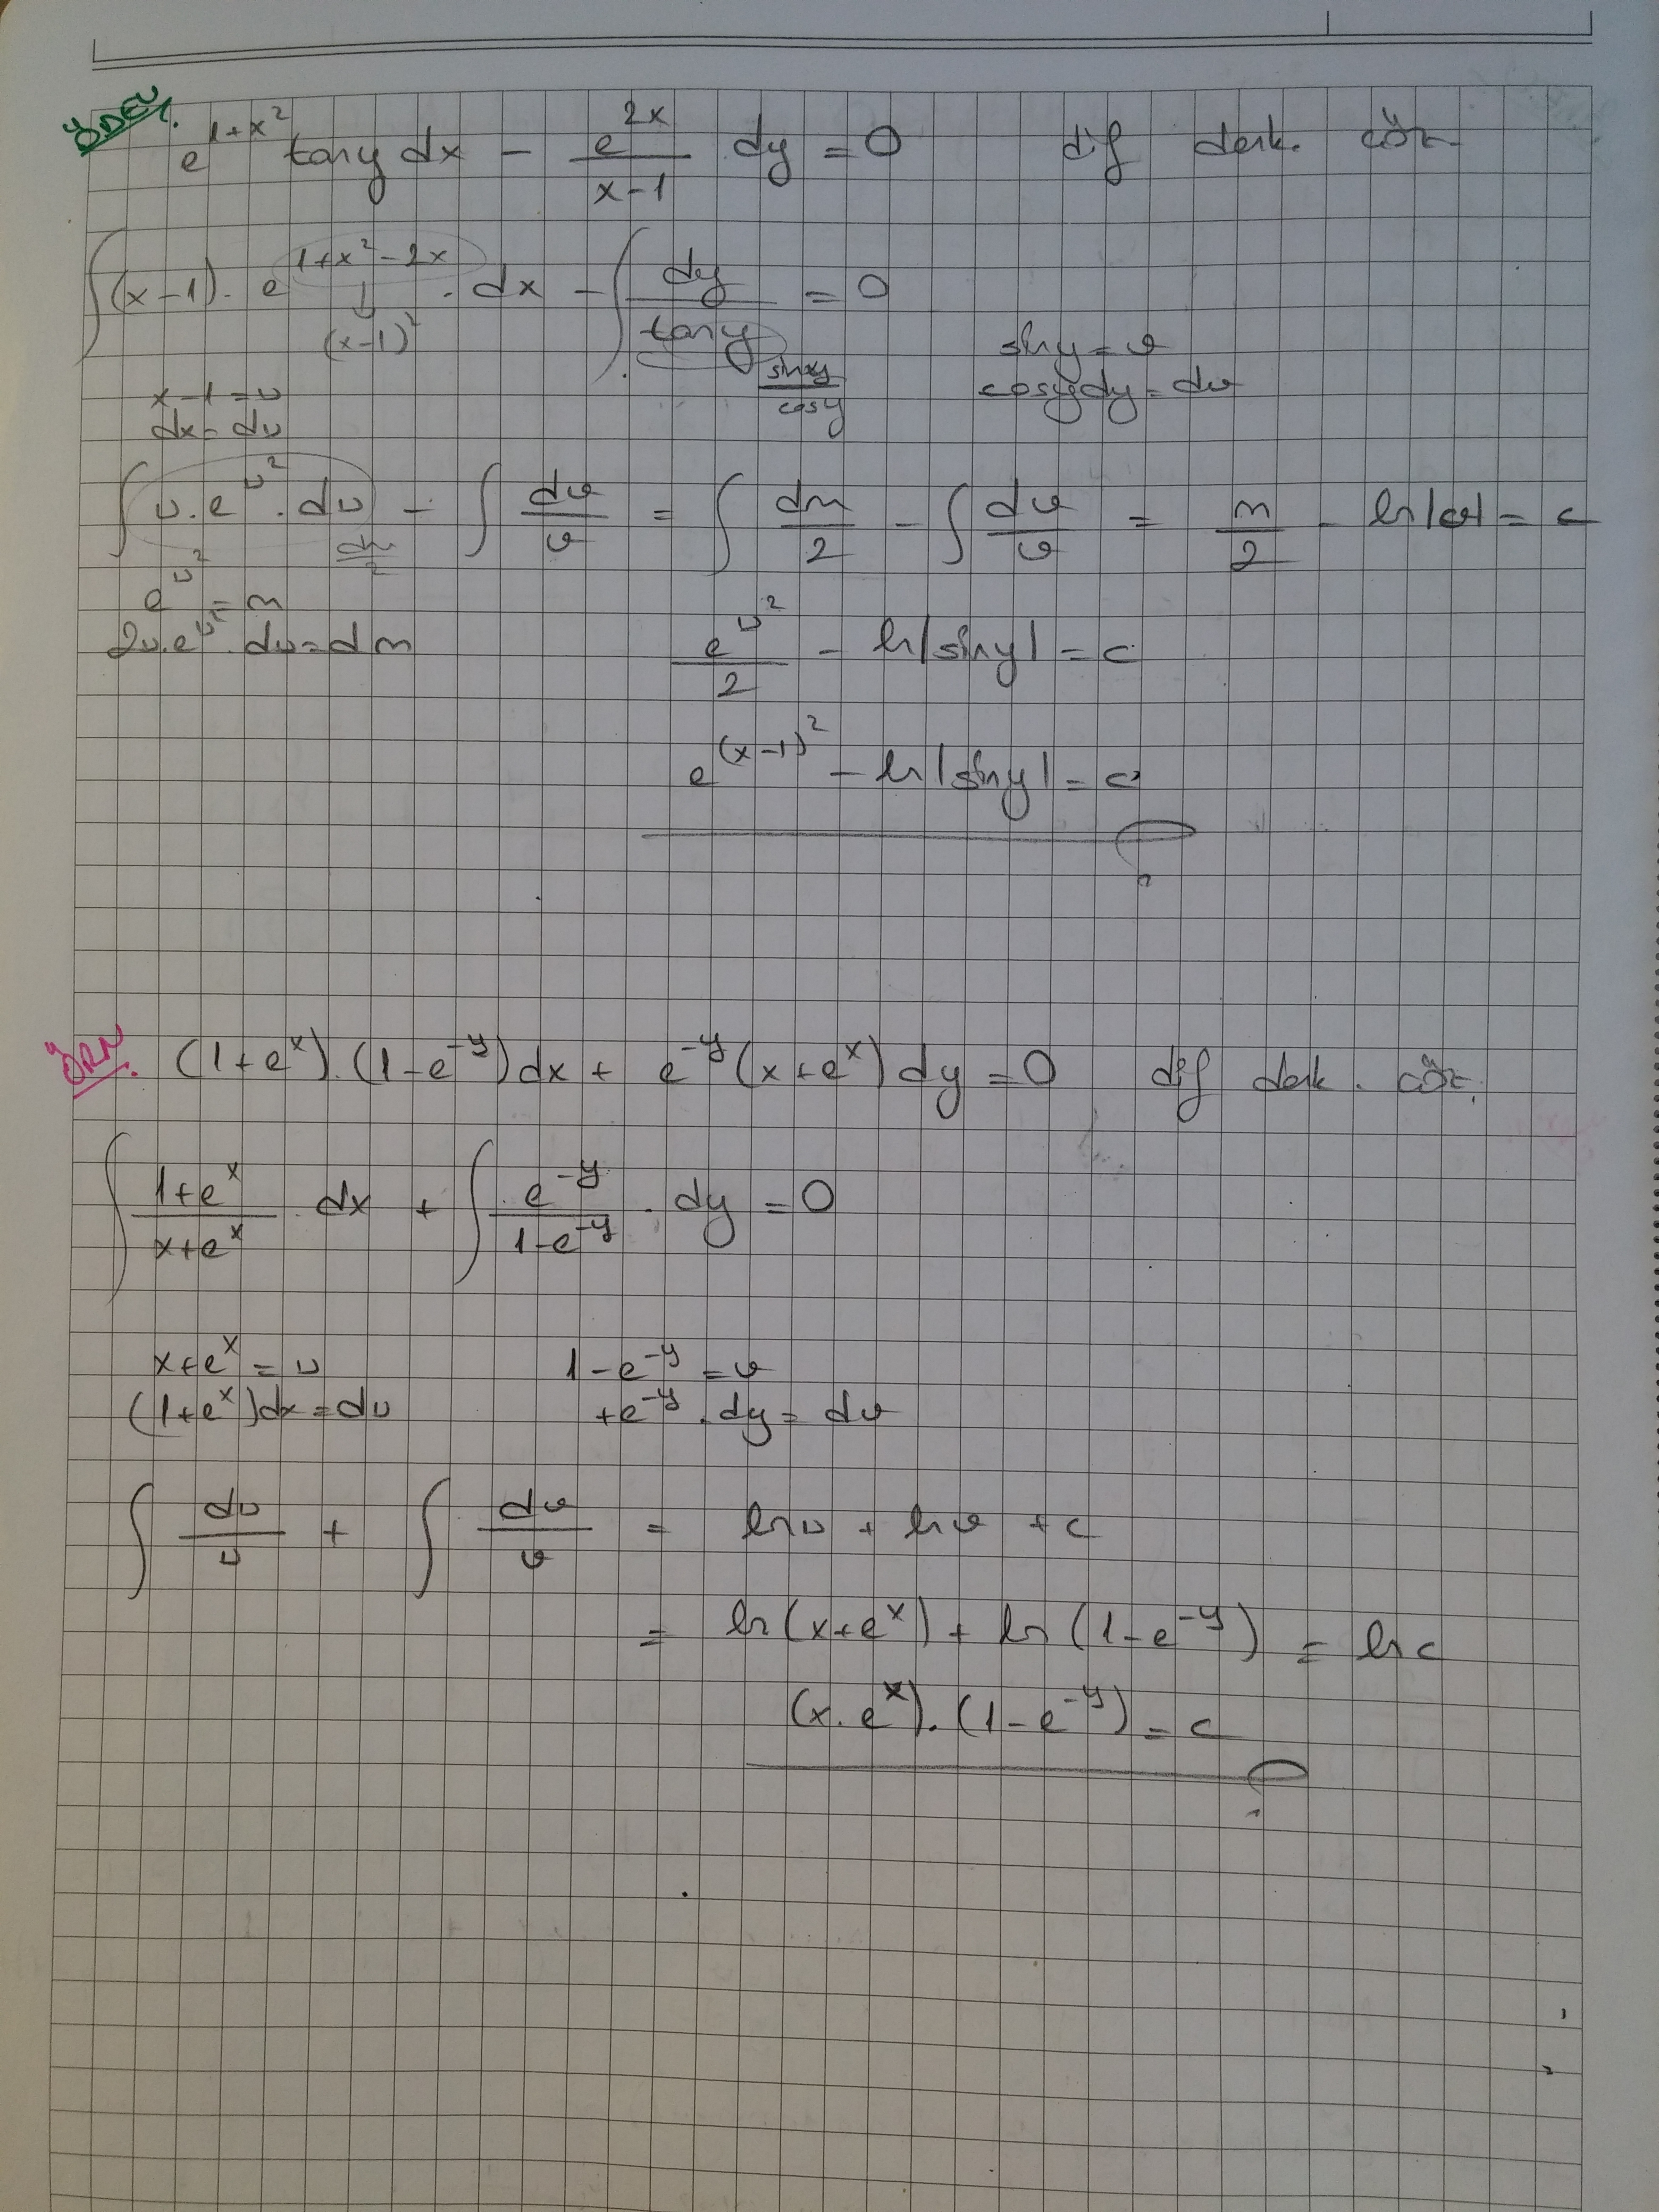 ÖDEV.
e^(1+x²) tany dx - e^(2x)/(x-1) dy = 0 dif denk. çöz
∫(x-1). e^(1+x²-2x) . dx - ∫ dy/tany = 0
↓
(x-1)²
siny/cosy
siny = v
cosydy = dv
x-1 = u
dx = du
∫ u.e^(u²) . du - ∫ dv/v = ∫ dm/2 - ∫ dv/v = m/2 - ln|v| = c
dm/2
e^(u²) = m
2u.e^(u²) . du = dm
e^(u²)/2 - ln|siny| = c
e^((x-1)²) - ln|siny| = c
ÖRN. (1+e^x).(1-e^(-y))dx + e^(-y)(x+e^x)dy = 0 dif denk. çöz.
∫ (1+e^x)/(x+e^x) . dx + ∫ e^(-y)/(1-e^(-y)) . dy = 0
x+e^x = u
(1+e^x)dx = du
1-e^(-y) = v
+e^(-y) . dy = dv
∫ du/u + ∫ dv/v = lnu + lnv + c
= ln(x+e^x) + ln(1-e^(-y)) = lnc
(x.e^x).(1-e^(-y)) = c